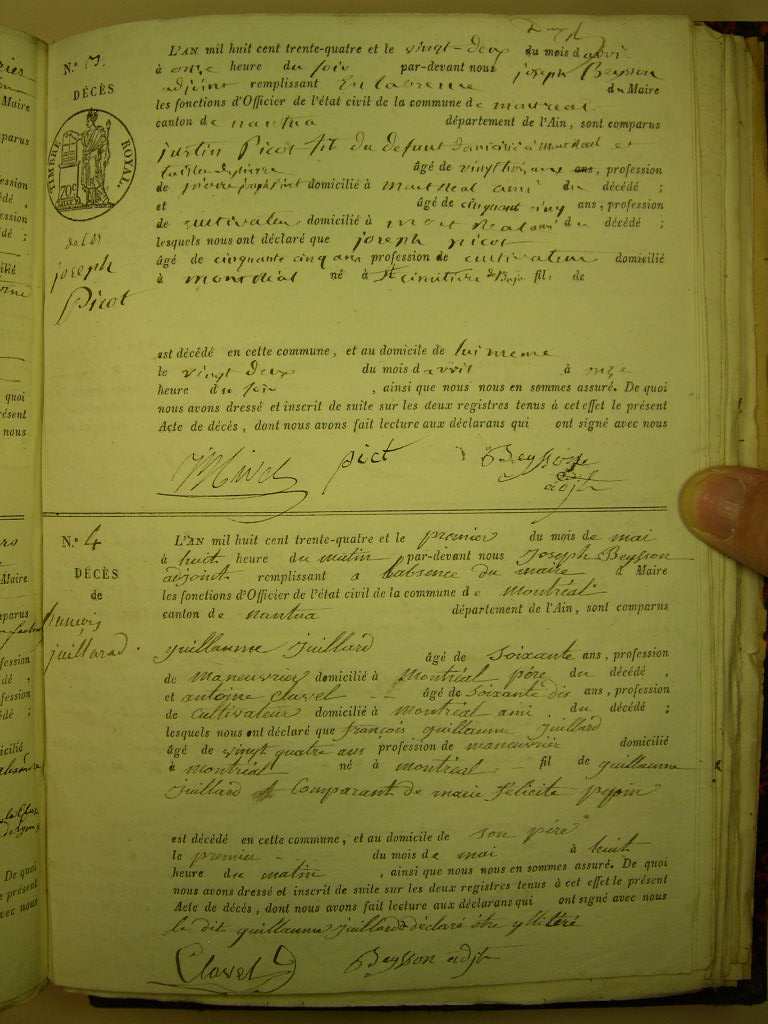 N.º 3.
DÉCÈS
TIMBRE ROYAL.
70c
joseph
Picot
L'AN mil huit cent trente-quatre et le vingt-deux du mois d avri
à onze heure du soir par-devant nous joseph Beysson
adjoint remplissant en labsence du Maire
les fonctions d'Officier de l'état civil de la commune de montreal
canton de nantua département de l'Ain, sont comparus
justin Picot fil du defunt domicilié à montreal et
âgé de vingt ans, profession
de domicilié à montreal ami du décédé ;
et âgé de cinquant cinq ans, profession
de cultivateur domicilié à montreal ami du décédé ;
lesquels nous ont déclaré que joseph picot
âgé de cinquante cinq ans profession de cultivateur domicilié
à montréal né à fil de
est décédé en cette commune, et au domicile de lui meme
le vingt deux du mois d avril à onze
heure du soir , ainsi que nous nous en sommes assuré. De quoi
nous avons dressé et inscrit de suite sur les deux registres tenus à cet effet le présent
Acte de décès, dont nous avons fait lecture aux déclarans qui ont signé avec nous
pict Beysson
adjt
N.º 4
DÉCÈS
de
françois
juillard.
L'AN mil huit cent trente-quatre et le premier du mois de mai
à huit heure du matin par-devant nous Joseph Beysson
adjoint remplissant a labsence du maire d Maire
les fonctions d'Officier de l'état civil de la commune de montréal
canton de nantua département de l'Ain, sont comparus
guillaume juillard âgé de soixante ans, profession
de maneuvrier domicilié à montréal père du décédé ,
et antoine clavel âgé de soixante dix ans, profession
de cultivateur domicilié à montréal ami du décédé ;
lesquels nous ont déclaré que françois guillaume juillard
âgé de vingt quatre ans profession de maneuvrier domicilié
à montréal né à montréal fil de guillaume
juillard comparant de marie félicité
est décédé en cette commune, et au domicile de son père
le premier du mois de mai à huit
heure du matin , ainsi que nous nous en sommes assuré. De quoi
nous avons dressé et inscrit de suite sur les deux registres tenus à cet effet le présent
Acte de décès, dont nous avons fait lecture aux déclarans qui ont signé avec nous
le dit guillaume juillard a déclaré être yllitéré
Clavel Beysson adjt